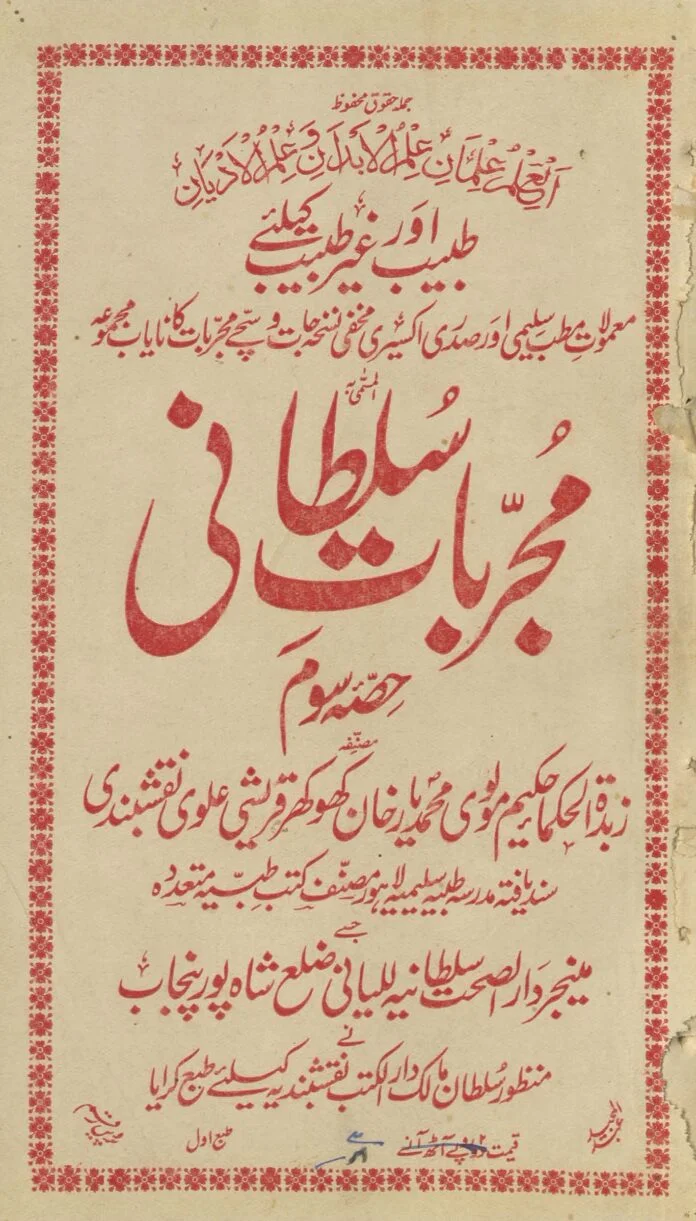 جملہ حقوق محفوظ
اَلْعِلْمُ عِلْمَانِ عِلْمُ الْاَبْدَانِ وَ عِلْمُ الْاَدْیَانِ
طبیب اور غیر طبیب کیلئے
معمولاتِ مطب سلیمی اور صدری اکسیری مخفی نسخہ جات و سچے مجربات کا نایاب مجموعہ
المسمّٰی بہ
مُجرّبات سُلطانی
حصّہ سوم
مصنّفہ
زبدۃ الحکما حکیم مولوی محمد یار خان کھوکھر قریشی علوی نقشبندی
سند یافتہ مدرسہ طبیہ سلیمیہ لاہور مصنّف کتب طبّیہ متعددہ
جسے
مینجر دار الصحت سلطانیہ للیانی ضلع شاہ پور پنجاب
نے
منظور سُلطان مالک دار الکتب نقشبندیہ کیلئے طبع کرایا
طبع اول
قیمت دو روپے آٹھ آنے